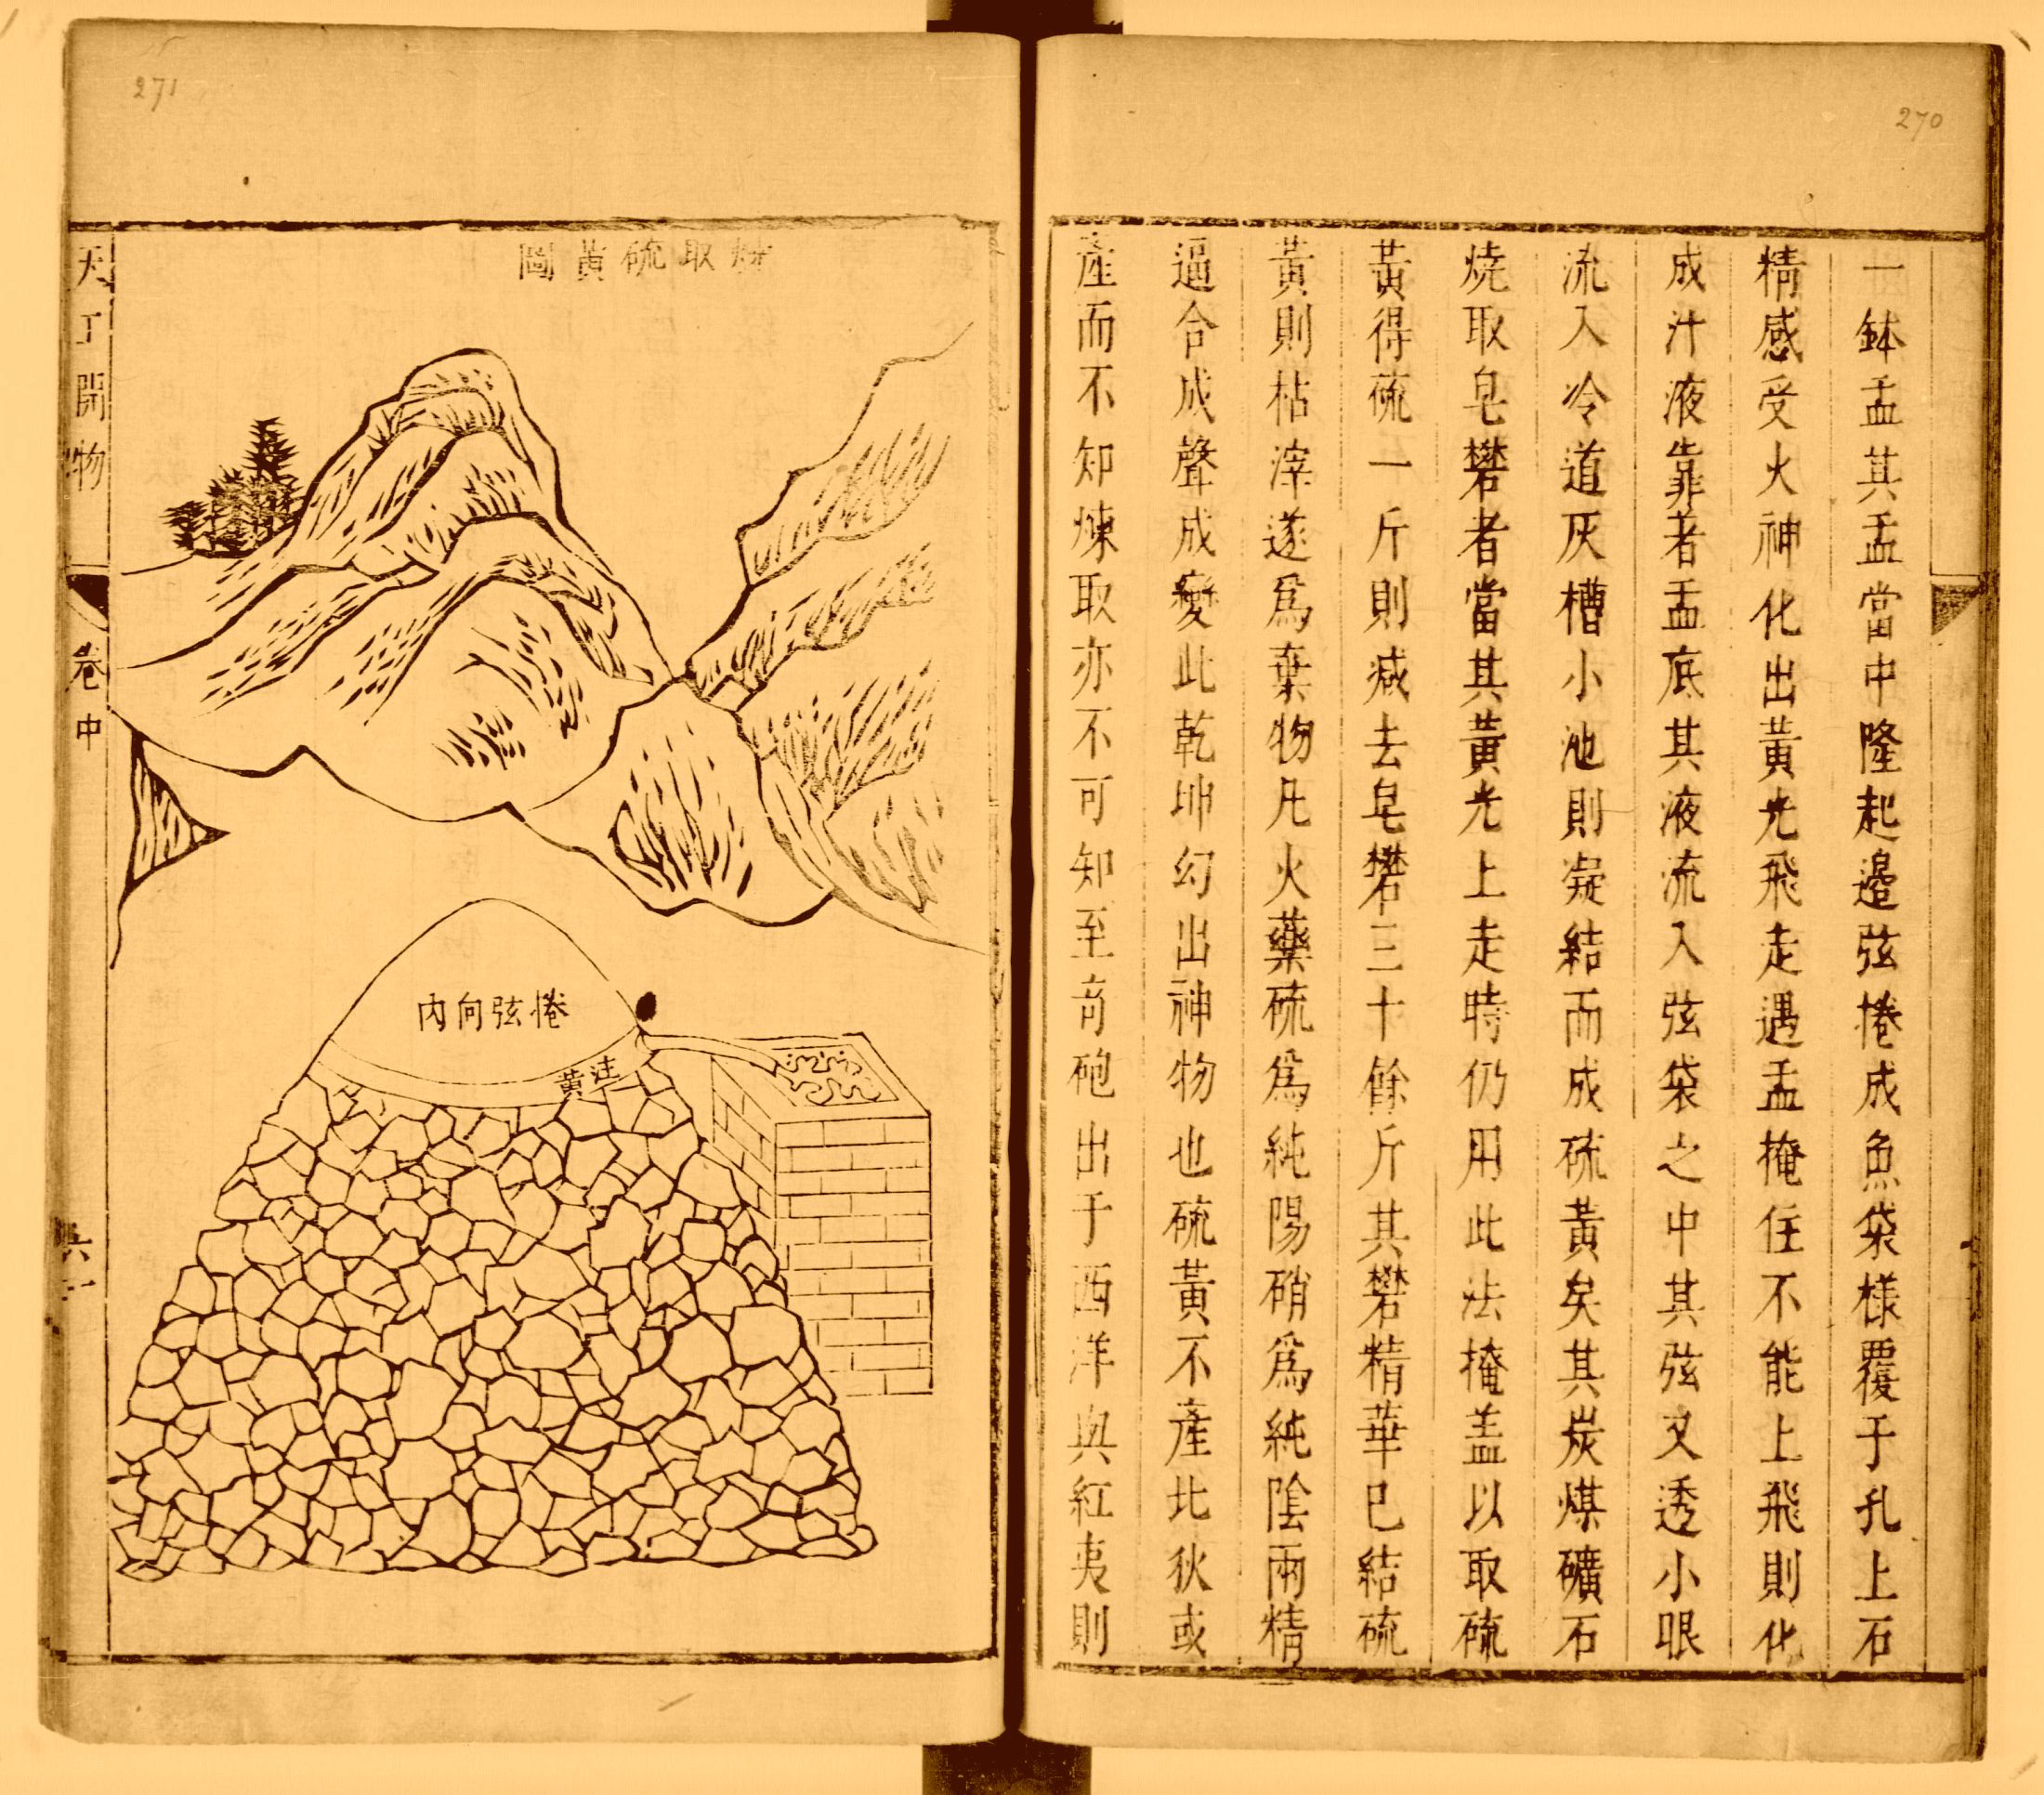 270
一鉢盂其盂當中隆起邉弦捲成魚袋様覆于孔上石
精感受火神化出黃光飛走遇盂掩住不能上飛則化
成汁液靠著盂底其液流入弦袋之中其弦又透小眼
流入冷道灰槽小池則凝結而成硫黃矣其炭煤礦石
燒取皂礬者當其黃光上走時仍用此法掩盖以取硫
黃得硫一斤則减去皂礬三十餘斤其礬精華已結硫
黃則枯滓遂爲棄物凡火藥硫爲純陽硝爲純陰兩精
逼合成聲成變此乾坤幻出神物也硫黃不產北狄或
產而不知煉取亦不可知至竒砲出于西洋與紅夷則
271
燒取硫黃圖
捲弦向內
注黃
天工開物
卷中
六一